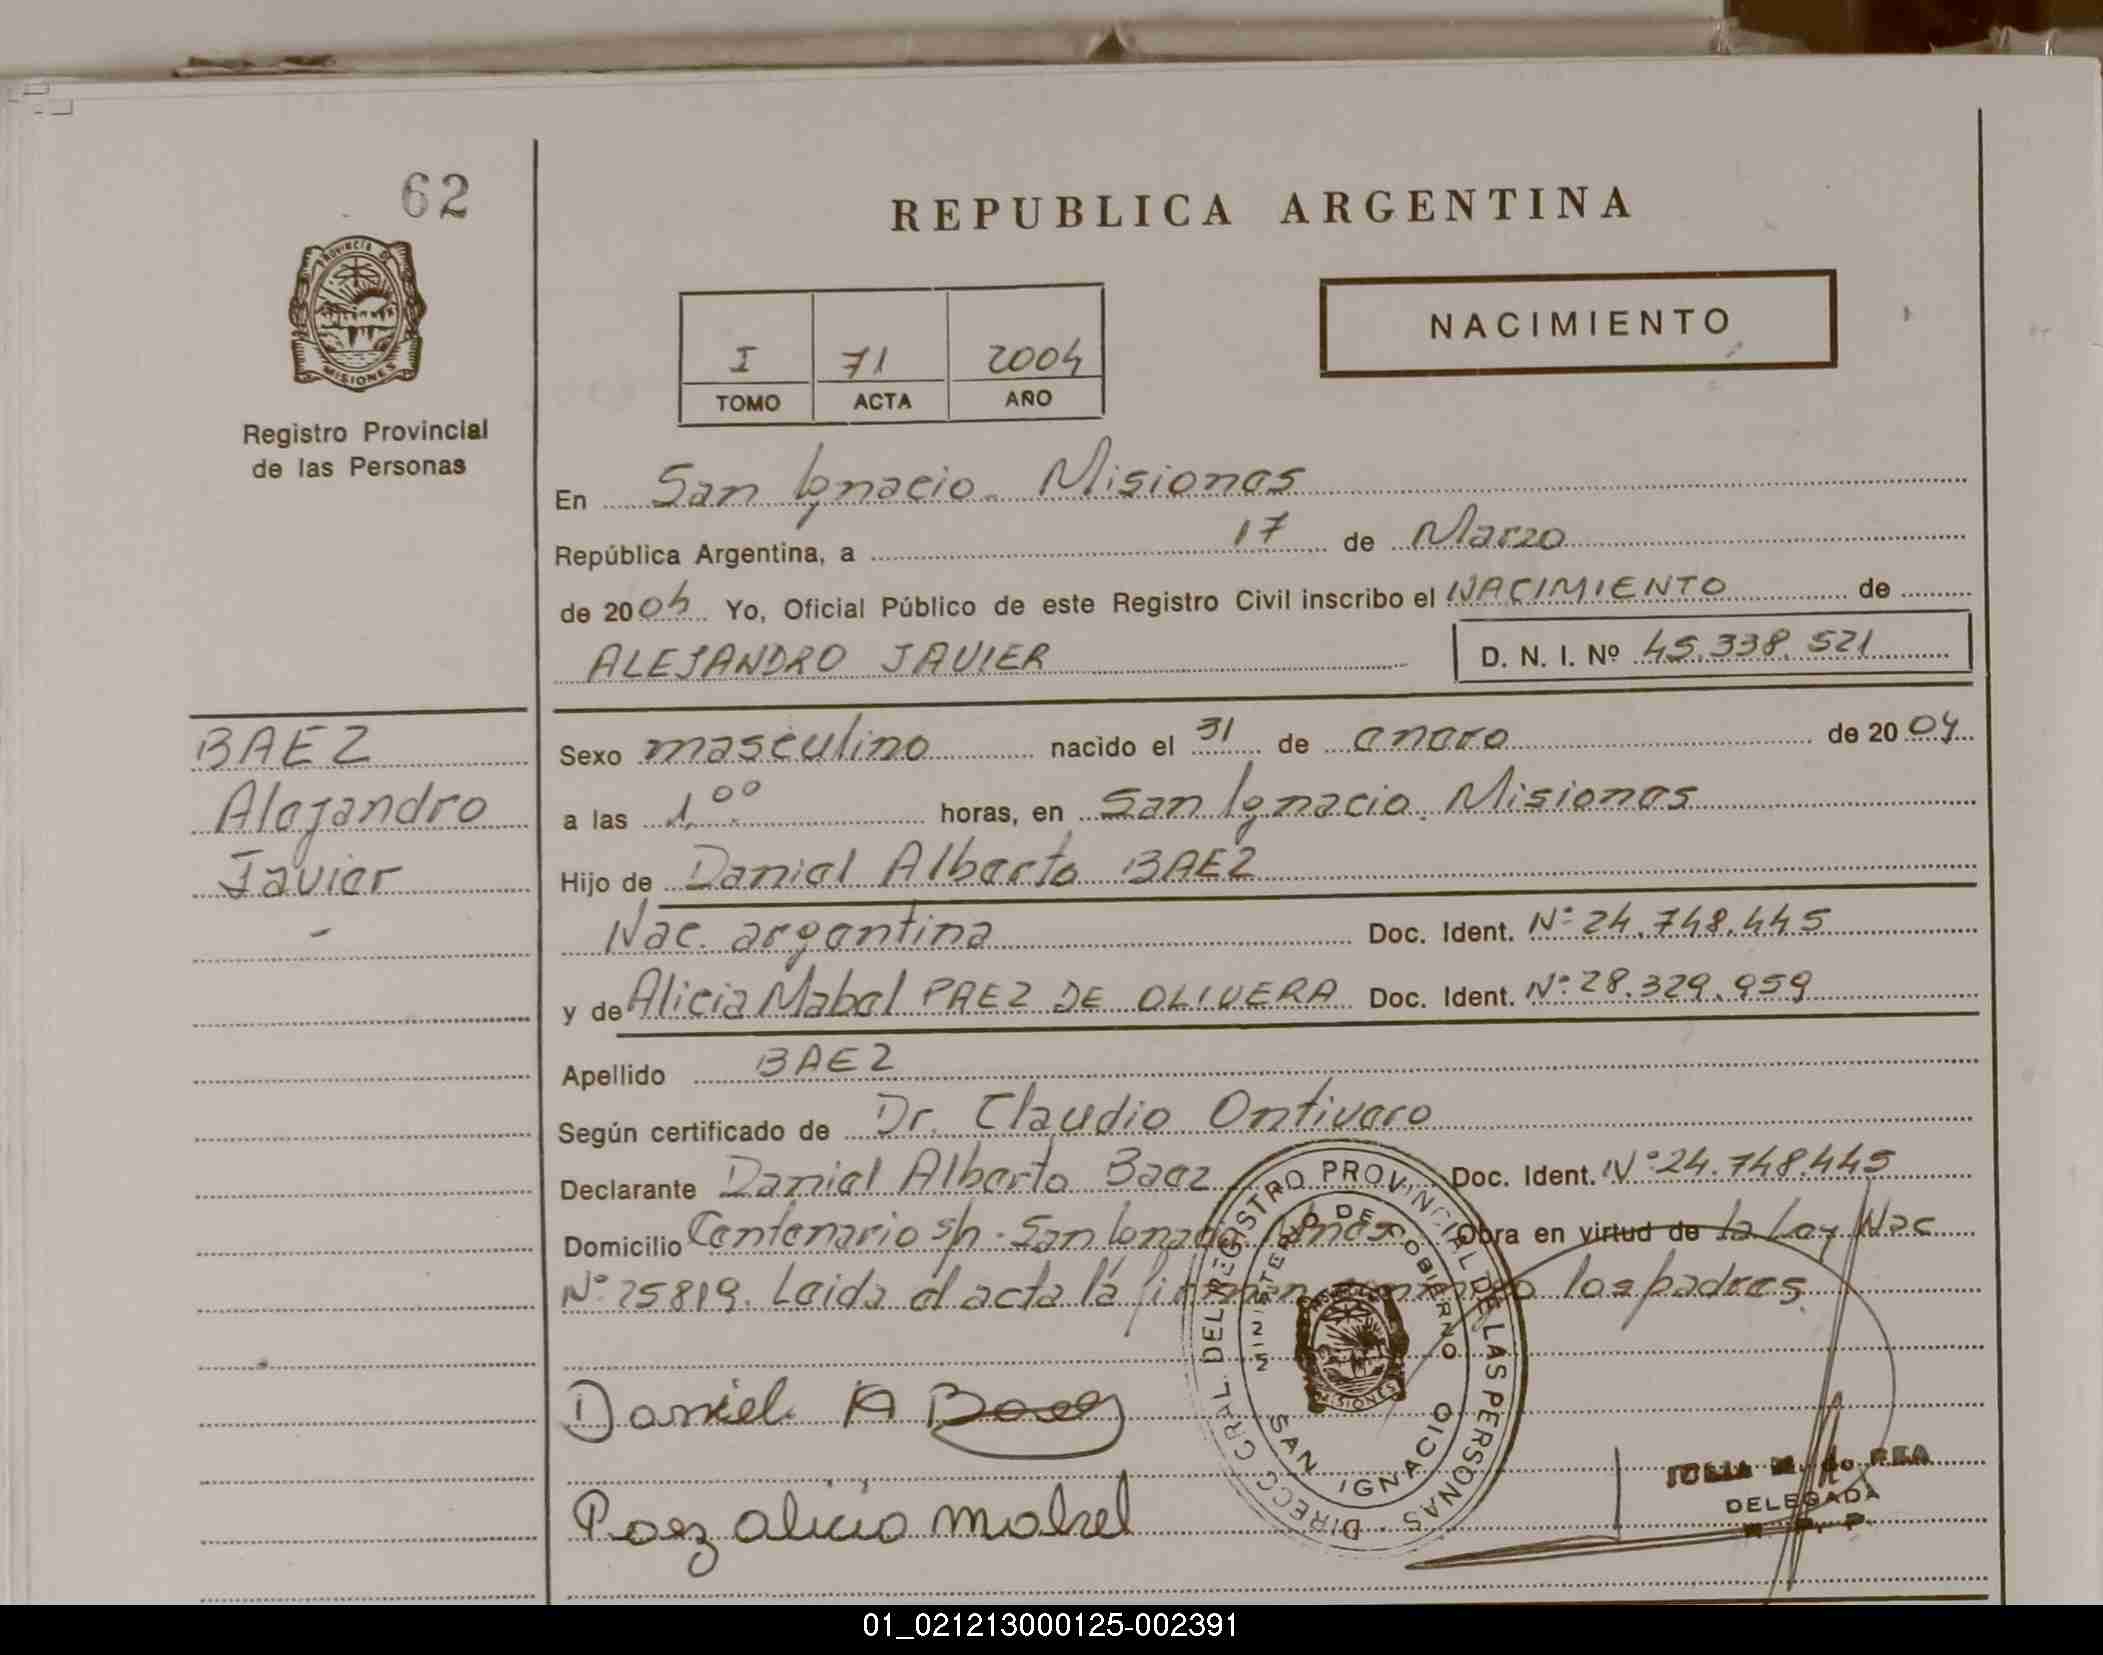 62
REPUBLICA ARGENTINA
PROVINCIA DE
MISIONES
NACIMIENTO
I 71 2004
TOMO ACTA AÑO
Registro Provincial
de las Personas
En San Ignacio. Misiones
República Argentina, a 17 de Marzo
de 2004 Yo, Oficial Público de este Registro Civil inscribo el NACIMIENTO de
ALEJANDRO JAVIER D. N. I. Nº 45.338.521
BAEZ
Alejandro
Javier
-
Sexo masculino nacido el 31 de enero de 2004
a las 1,00 horas, en San Ignacio. Misiones
Hijo de Daniel Alberto BAEZ
Nac. argentina Doc. Ident. Nº 24.748.445
y de Alicia Mabel PAEZ DE OLIVERA Doc. Ident. Nº 28.329.959
Apellido BAEZ
Según certificado de Dr. Claudio Ontivero
Declarante Daniel Alberto Baez Doc. Ident. Nº 24.748.445
Domicilio Centenario s/n. San Ignacio. Mnes. Obra en virtud de la Ley Nac
Nº 25819. Leida el acta la firman conmigo los padres.
DIRECC. GRAL. DEL REGISTRO PROVINCIAL DE LAS PERSONAS
MINISTERIO DE GOBIERNO
MISIONES
SAN IGNACIO
Daniel A Baez
Paez alicia mabel
DELEGADA
01_021213000125-002391